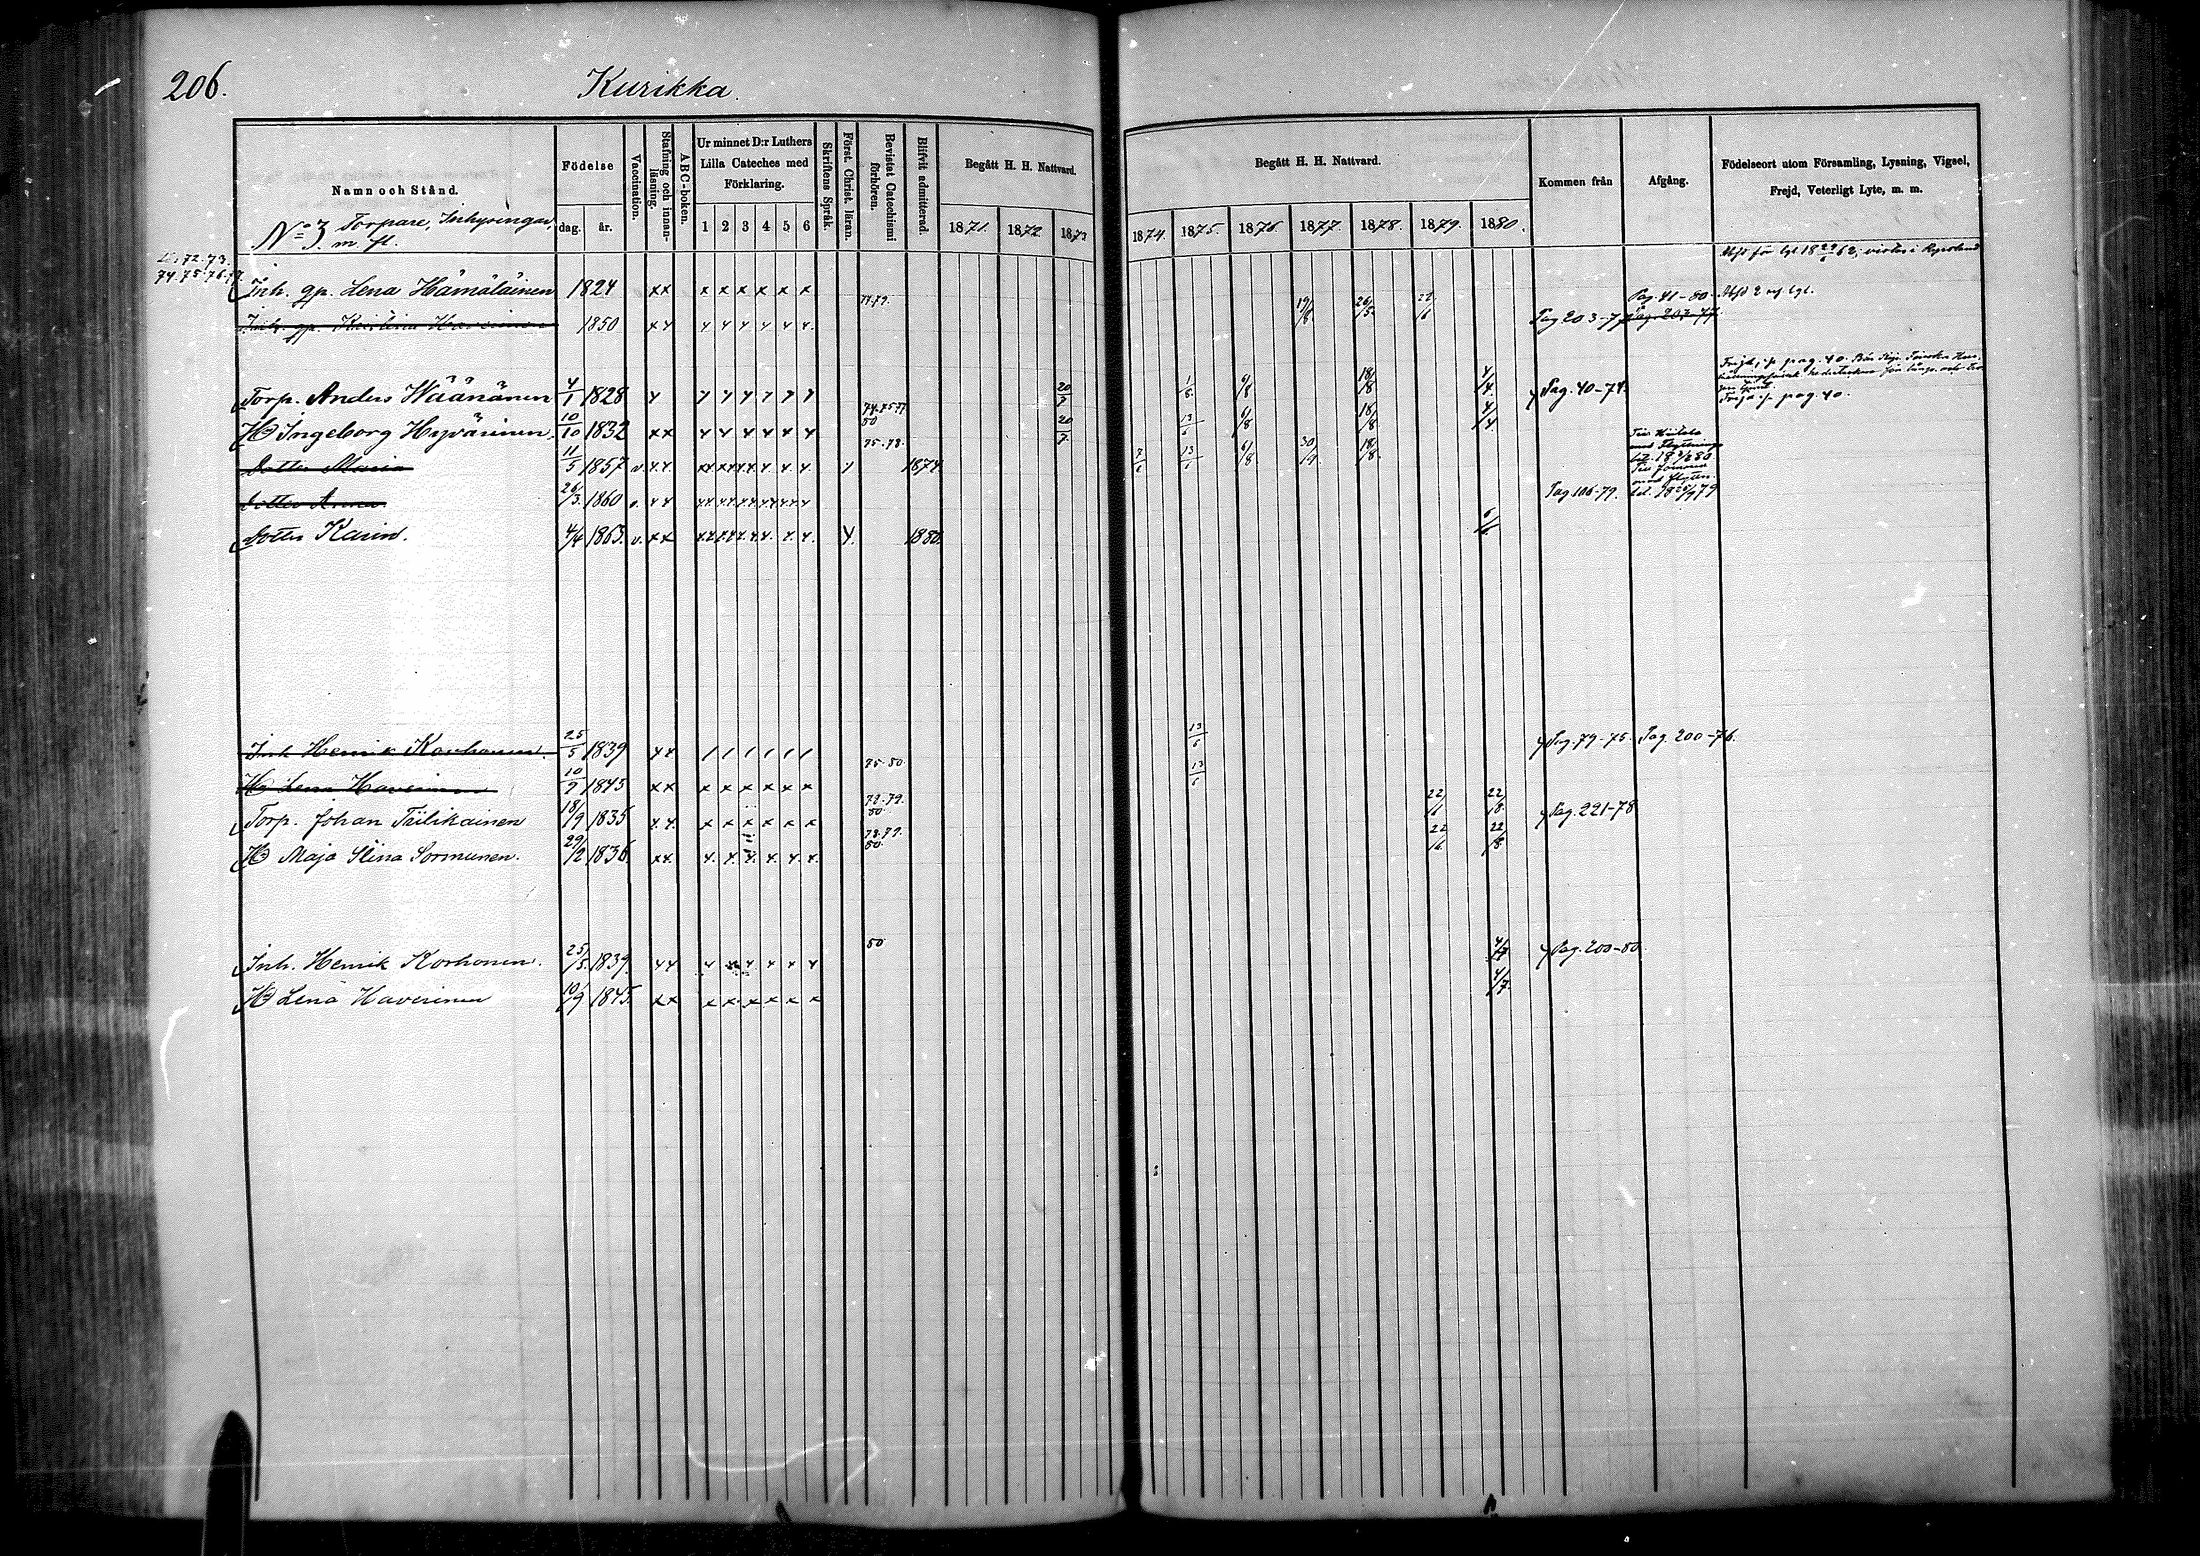 206.
Kurikka.
Namn och Stånd.
Födelse
dag. år.
Vaccination.
Stafning och innanläsning.
ABC-boken.
Ur minnet D:r Luthers Lilla Cateches med Förklaring.
1 2 3 4 5 6
Skriftens Språk.
Först. Christ. läran.
Bevistat Catechismi förhören.
Blifvit admitterad.
Begått H. H. Nattvard.
1871. 1872. 1873
Begått H. H. Nattvard.
1874. 1875. 1876. 1877. 1878. 1879. 1880.
Kommen från
Afgång.
Födelseort utom Församling, Lysning, Vigsel,
Frejd, Veterligt Lyte, m. m.
No 3 Torpare, Inhysingar, m. fl.
72. 73.
74. 75. 76. 77.
Inh. gp. Lena Hämäläinen 1824 x x x x x x x x
Inh. gp. Kristina Haverinen 1850 x x x x x x x x 77.79. 19/8 26/5 22/6 Pag 203-77 Pag. 41-80. Pag. 207-77
Torp. Anders Väänänen 4/1 1828 20/7 1/6 6/8 18/8 4/4 Pag. 40-74.
Frejd, se pag. 40.
H Ingeborg Hyvärinen. 10/10 1832 x x x x x x x x 74.75.77 80 20/7 13/6 6/8 18/8 4/4
Frejd se pag. 40.
Dotter Maria 11/5 1857 v. 75.78. 1874. 7/6 13/6 6/8 30/9 18/8
Dotter Anna 26/3. 1860 v. Pag 106-79.
Dotter Karin. 4/4 1863. v. 1880.
Inh Henrik Korhonen. 25/5 1839 x x 1 1 1 1 1 1 13/6 Pag. 79-75. Pag. 200-76.
H Lena Haverinen 10/9 1845 x x x x x x x x 75.80. 13/6
Torp. Johan Tiilikainen 18/9 1835 x x x x x x x x 72.79. 80. 22/6 22/8 Pag. 221-78
H Maja Stina Sormunen. 29/2 1836 x x x x x x x x 78.79. 80. 22/6 22/8
Inh. Henrik Korhonen. 25/5. 1839. x x x x x x x x 80 4/7 Pag. 200-80.
H Lena Haverinen 10/9 1845. x x x x x x x x 4/7